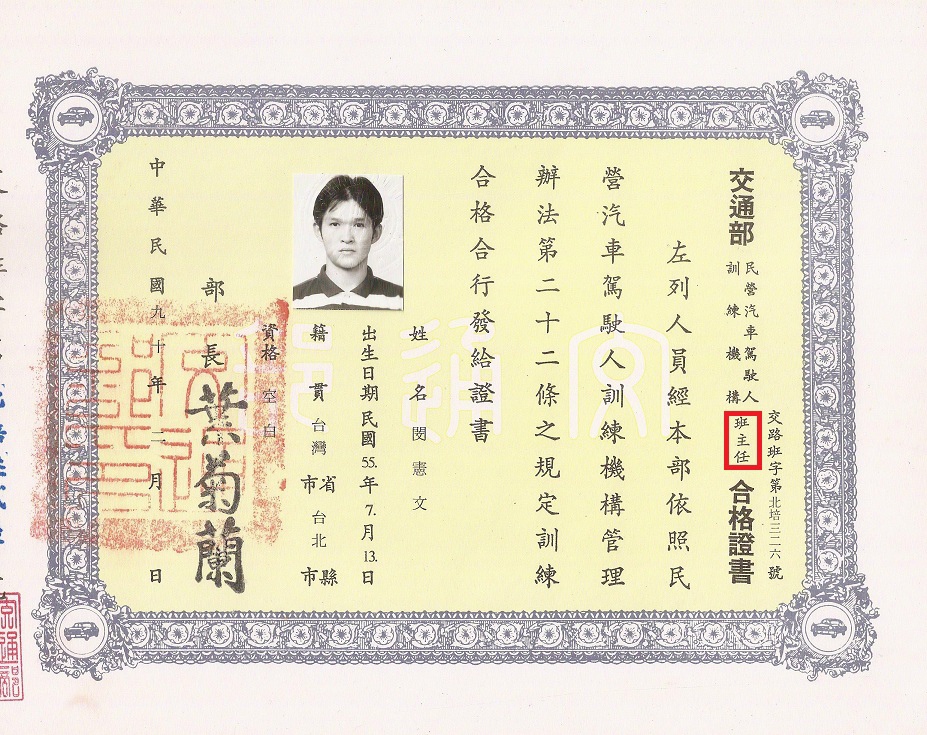 交通部
民營汽車駕駛人
訓練機構
班主任
合格證書
交路班字第北培三二六號
左列人員經本部依照民
營汽車駕駛人訓練機構管理
辦法第二十二條之規定訓練
合格合行發給證書
姓名 閔憲文
出生日期民國55.年7.月13.日
籍貫 台灣省 台北縣
市 市
資格 空白
部長 葉菊蘭
中華民國九十年二月 日
交通部